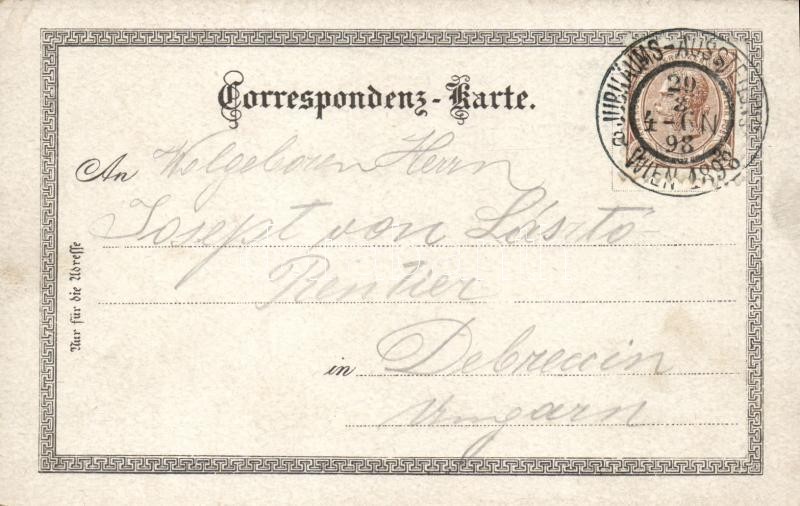 Correspondenz-Karte.
JUBILÄUMS-AUSSTELLUNG
29
4-6 N
98
WIEN 1898
An Wolgeboren Herrn
Josept von László
Rentier
in Debreccin
Ungarn
Nur für die Adresse